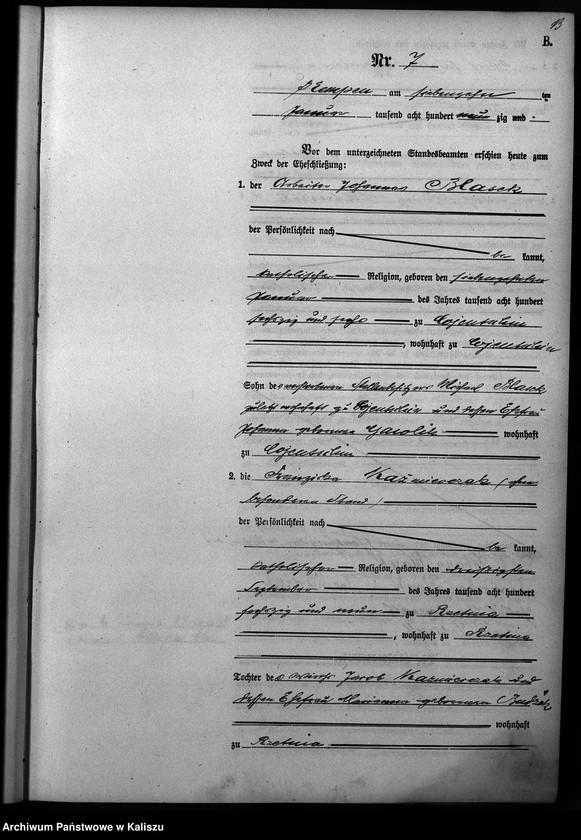 13
B.
Nr. 7
Kempen am siebenzehn ten
Januar tausend acht hundert neun zig und
Vor dem unterzeichneten Standesbeamten erschien heute zum
Zweck der Eheschließung:
1. der Arbeiter Johannes Blasek
der Persönlichkeit nach
be kannt,
katholischer Religion, geboren den siebenzehnten
Januar des Jahres tausend acht hundert
sechszig und sechs zu Wojentulin
, wohnhaft zu Wojentulin
Sohn des verstorbenen Stellenbesitzers Michael Blasek
zuletzt wohnhaft zu und dessen Ehefrau
Johanna geborene wohnhaft
zu Wojentulin
2. die Franziska Kaźmierczak (ohne
besonderen Stand)
der Persönlichkeit nach
be kannt,
katholischer Religion, geboren den dreißigsten
September des Jahres tausend acht hundert
sechszig und neun zu Rzetnia
, wohnhaft zu Rzetnia
Tochter des Wirths Jacob Kazmierczak und
dessen Ehefrau Marianna geborenen
wohnhaft
zu Rzetnia
Archiwum Państwowe w Kaliszu